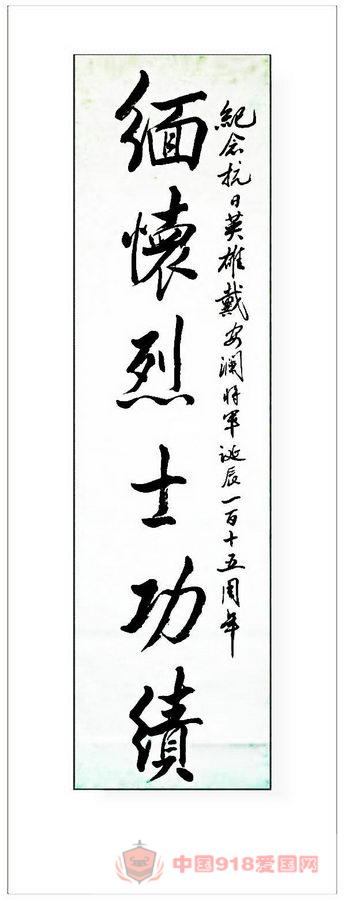 紀念抗日英雄戴安澜将軍诞辰一百十五周年
缅懷烈士功績
中国918爱国网